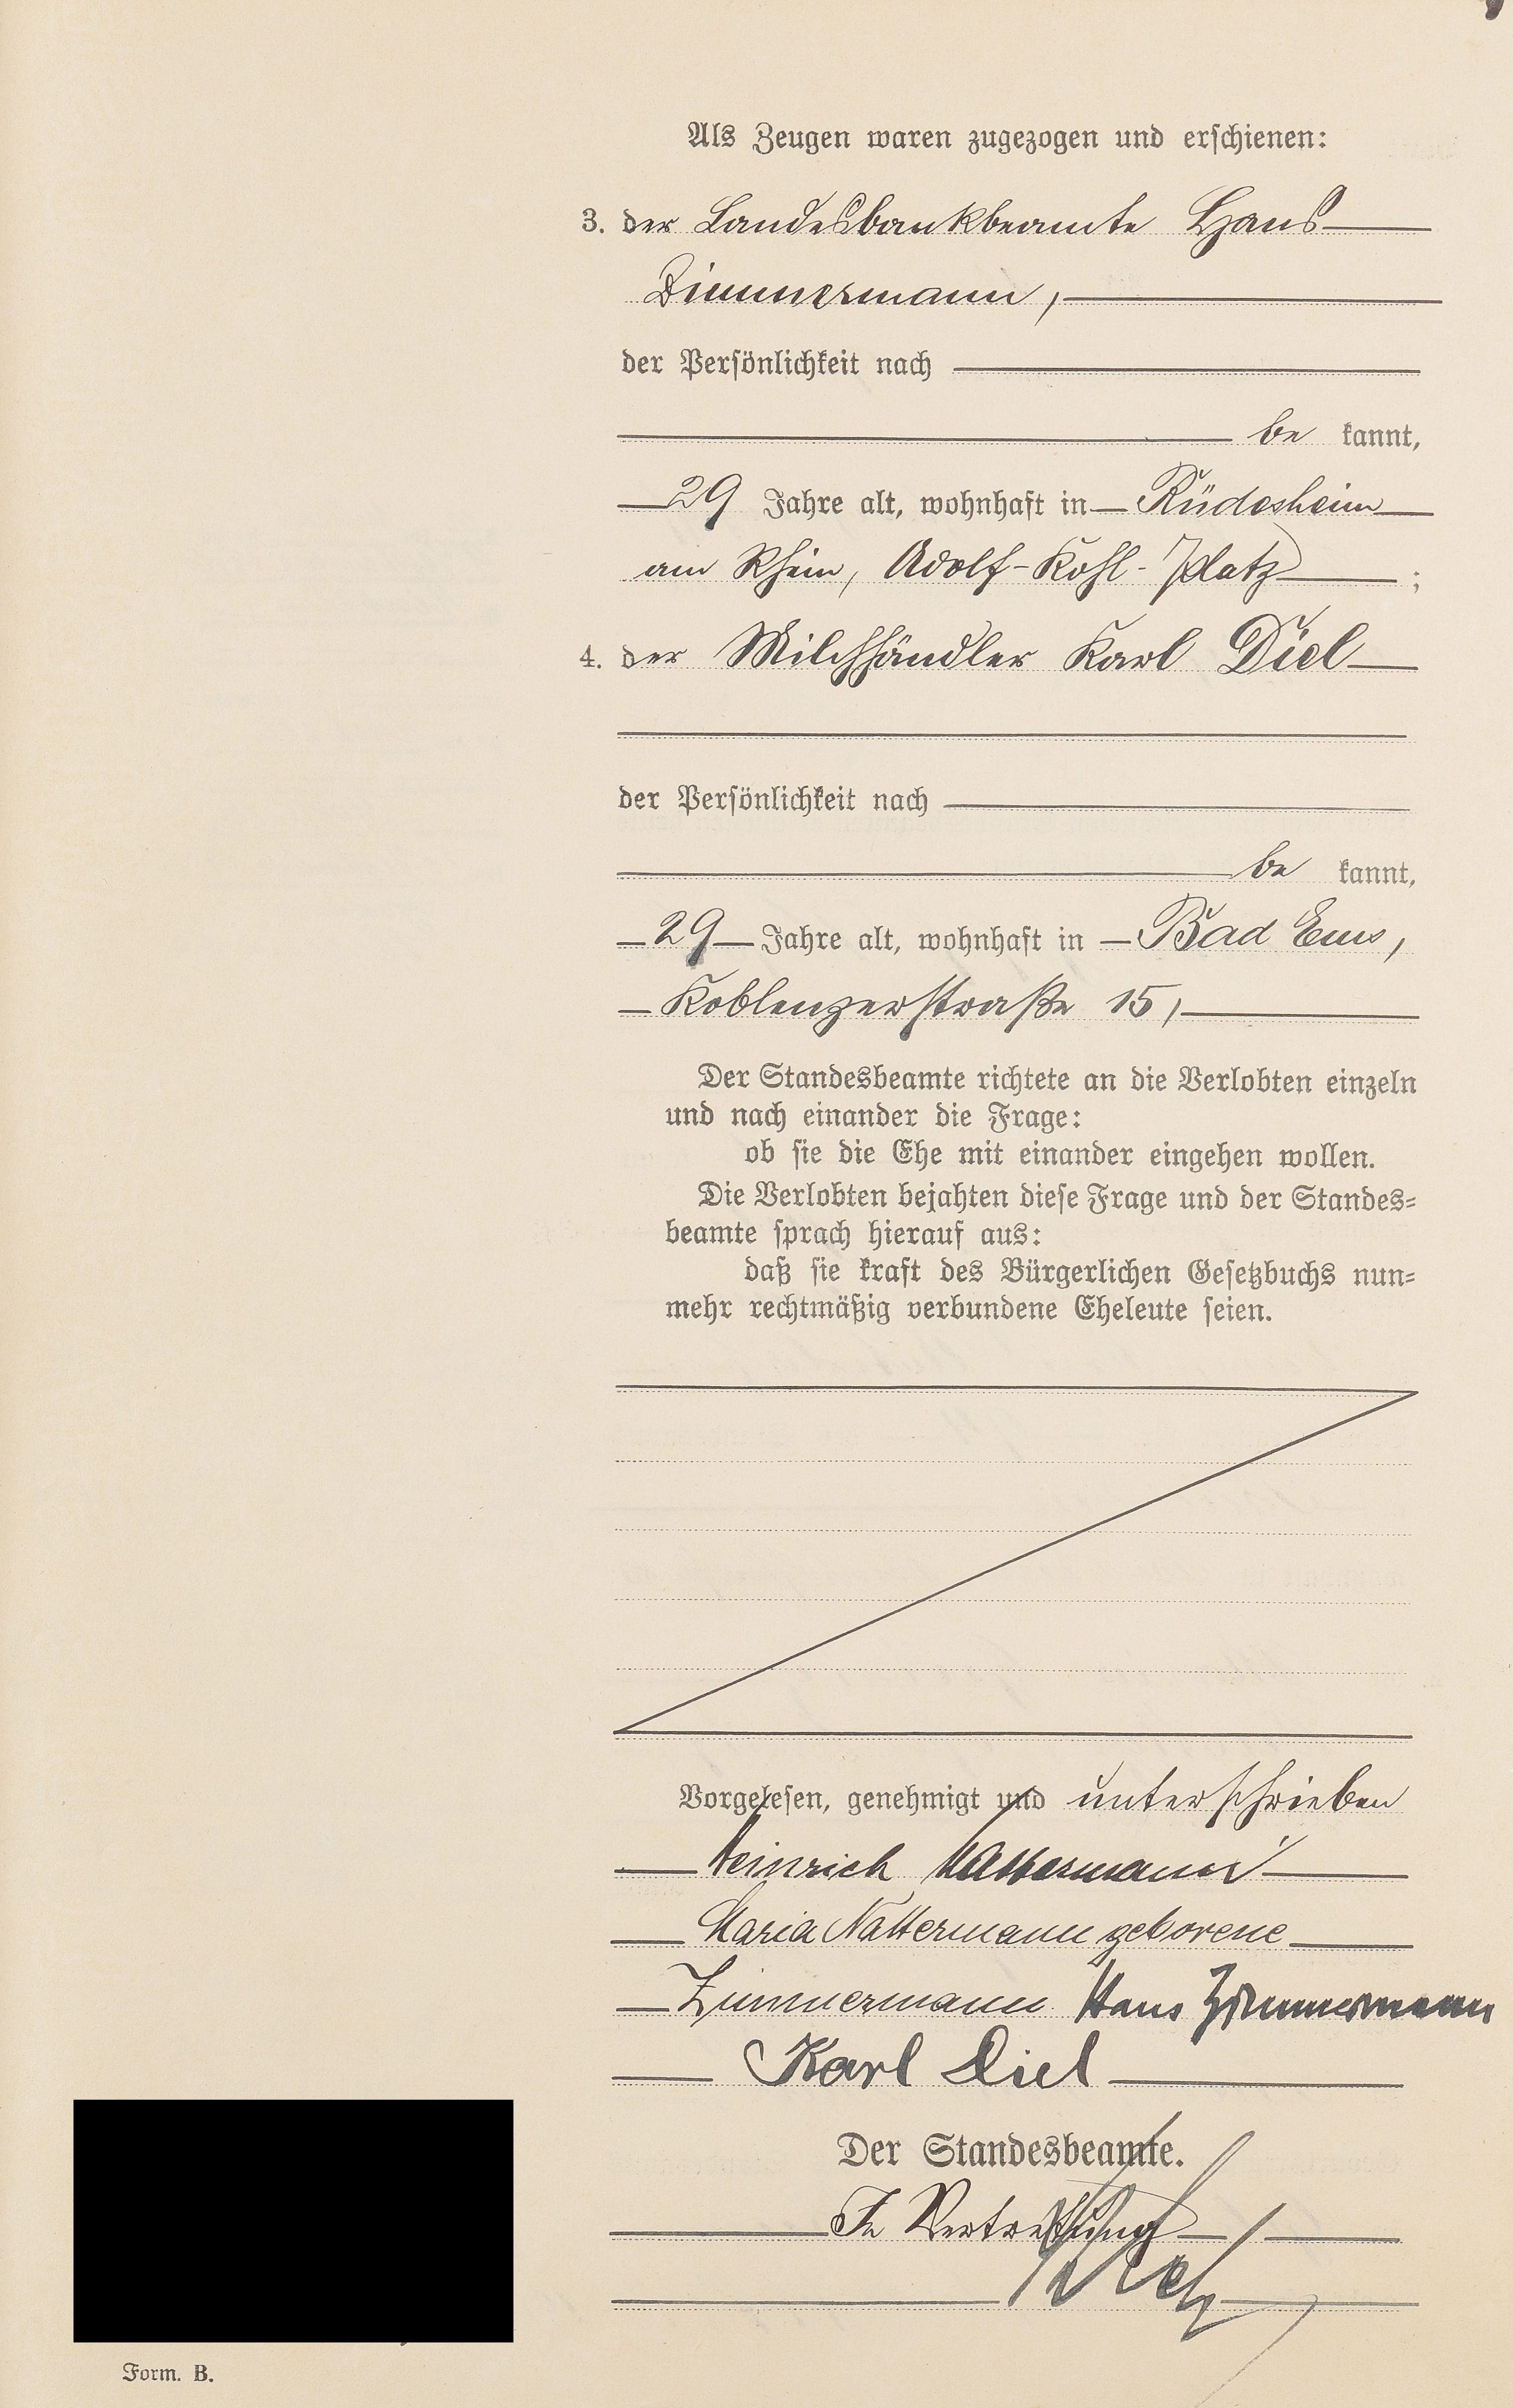 Als Zeugen waren zugezogen und erschienen:
3. der Landesbankbeamte Hans
Zimmermann,
der Persönlichkeit nach
be kannt,
29 Jahre alt, wohnhaft in Rüdesheim
am Rhein, Adolf-Kohl-Platz ;
4. der Milchhändler Karl Diel
der Persönlichkeit nach
be kannt,
29 Jahre alt, wohnhaft in Bad Ems,
Koblenzerstraße 15,
Der Standesbeamte richtete an die Verlobten einzeln
und nach einander die Frage:
ob sie die Ehe mit einander eingehen wollen.
Die Verlobten bejahten diese Frage und der Standes=
beamte sprach hierauf aus:
daß sie kraft des Bürgerlichen Gesetzbuchs nun=
mehr rechtmäßig verbundene Eheleute seien.
Vorgelesen, genehmigt und unterschrieben
Heinrich Nattermann
Maria Nattermann geborene
Zimmermann Hans Zimmermann
Karl Diel
Der Standesbeamte.
In Vertretung
Form. B.